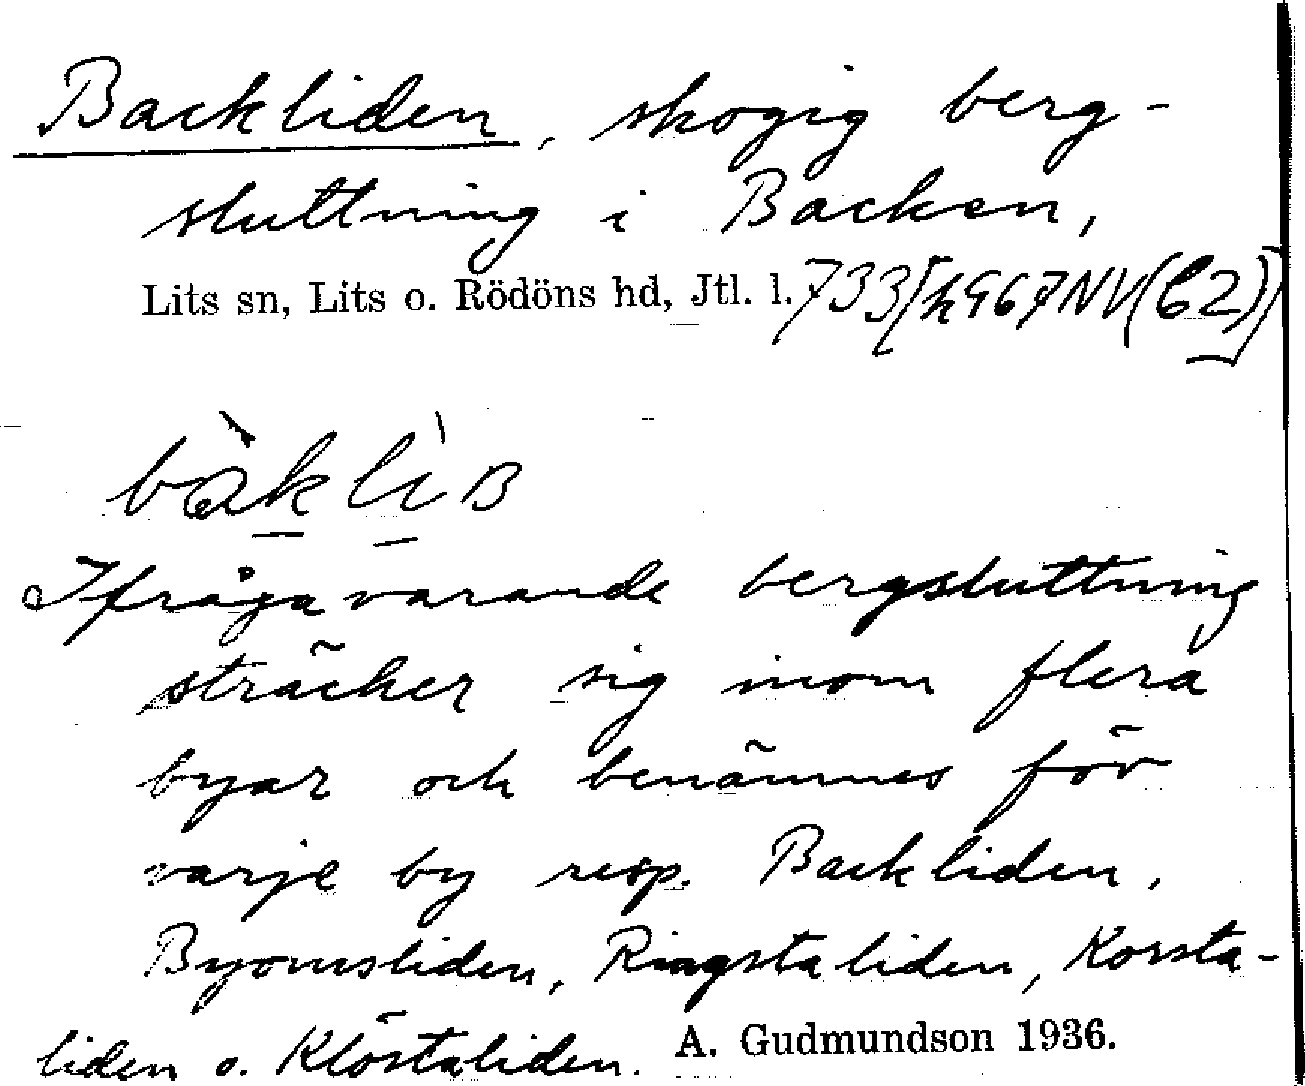 Backliden, skogig berg-
sluttning i Backen,
Lits sn, Lits o. Rödöns hd, Jtl. l. 733[h967NV(C2)]
Ifrågavarande bergsluttning
sträcker sig inom flera
byar och benämnes för
varje by resp. Backliden,
Byomsliden, Ringstaliden, Korsta-
liden o. Klöstaliden. A. Gudmundson 1936.